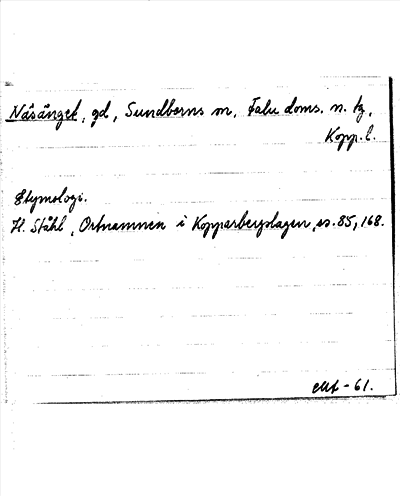 Näsänget, gd, Sundborns sn, Falu doms. n. tg,
Kopp. l.
Etymologi.
H. Ståhl, Ortnamnen i Kopparbergslagen, ss. 85, 168.
-61.